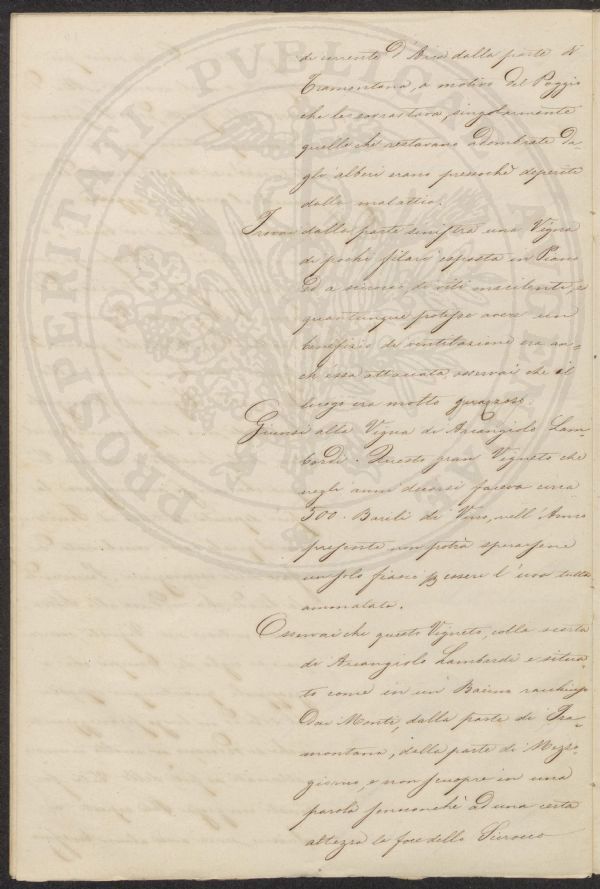 di corrente d'Aria dalla parte di
Tramontana, a motivo del Poggio
che le sovrastava, singolarmente
quelle che restavano adombrate da-
gl' alberi erano pressochè deperite
dalla malattia.
Trovai dalla parte sinistra una Vigna
di pochi filari esposta in Piano
ed a scirocco, di viti macilenti, e
quantunque potesse avere un
benefizio di ventilazione era an-
ch'essa attaccata, osservai che il
luogo era molto
Giunsi alla Vigna di Arcangiolo Lam-
bardi. Questo gran Vigneto che
negli anni decorsi faceva circa
500. Barili di Vino, nell'Anno
presente non potrà sperarsene
un solo fiasco p essere l'uva tutta
ammalata.
Osservai che questo Vigneto, colla scorta
di Arcangiolo Lambardi e situa-
to come in un Bacino racchiuso
Dai Monti, dalla parte di Tra-
montana, dalla parte di Mezzo-
giorno, e non scuopre in una
parola sennonchè ad una certa
altezza la foce dello Scirocco
PROSPERITATI PVBLICAE AVGENDAE